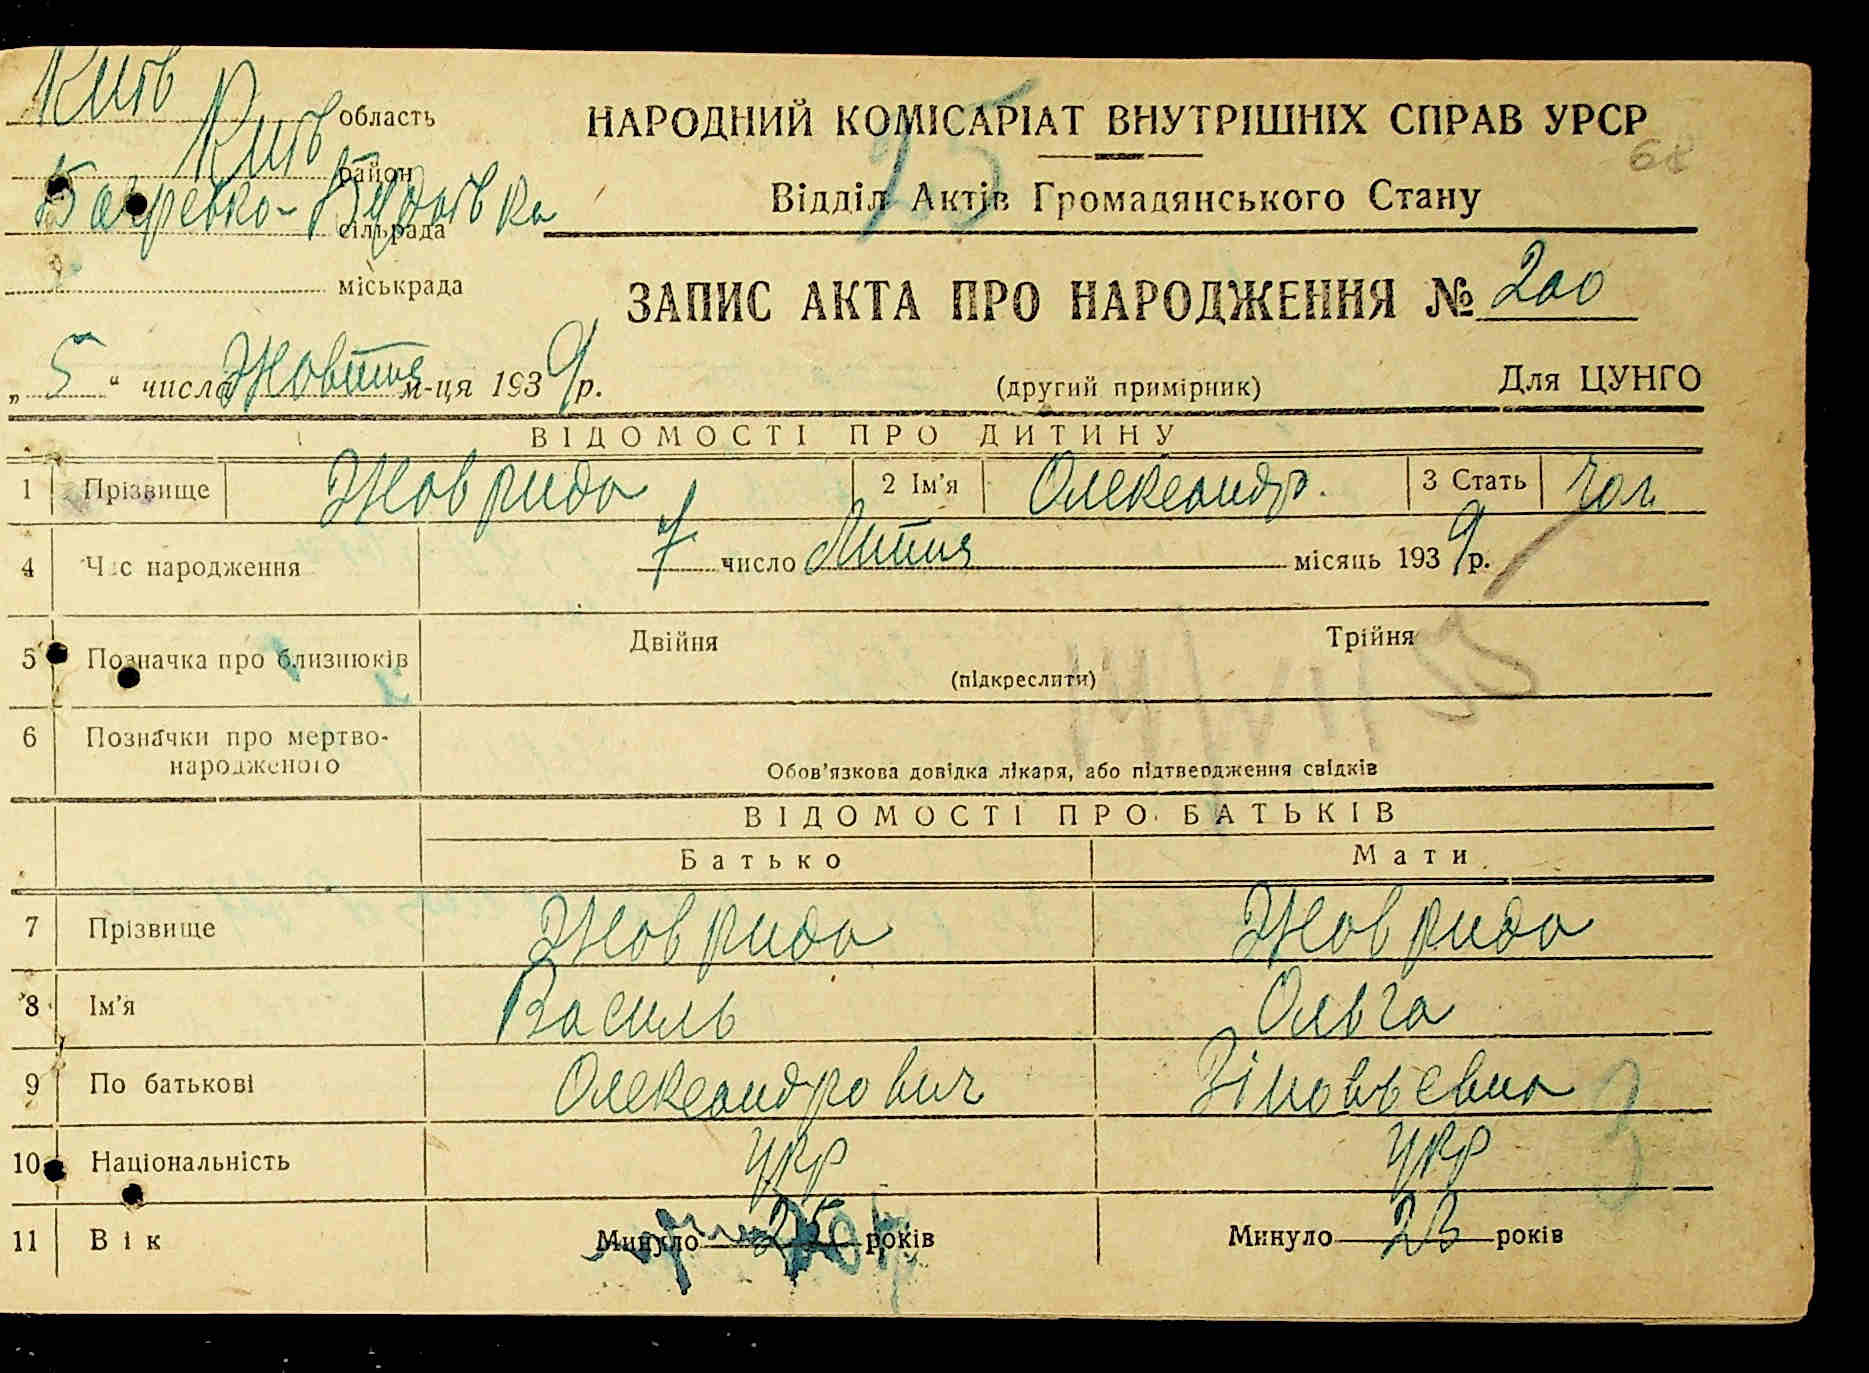 Київ область
Київ район
сільрада
міськрада
НАРОДНИЙ КОМІСАРІАТ ВНУТРІШНІХ СПРАВ УРСР
68
25
Відділ Актів Громадянського Стану
ЗАПИС АКТА ПРО НАРОДЖЕННЯ № 200
„ 5 “ числа Жовтня м-ця 1939 р.
(другий примірник)
Для ЦУНГО
ВІДОМОСТІ ПРО ДИТИНУ
1 Прізвище Жоврида 2 Ім'я Олександр. 3 Стать чол.
4 Час народження 7 число Липня місяць 1939 р.
5 Позначка про близнюків Двійня Трійня
(підкреслити)
6 Позначки про мертво-
народженого
Обов'язкова довідка лікаря, або підтвердження свідків
ВІДОМОСТІ ПРО БАТЬКІВ
Батько Мати
7 Прізвище Жоврида Жоврида
8 Ім'я Василь Ольга
9 По батькові Олександрович Зіновьєвна
10 Національність укр укр
11 Вік Минуло 25 років Минуло 23 років